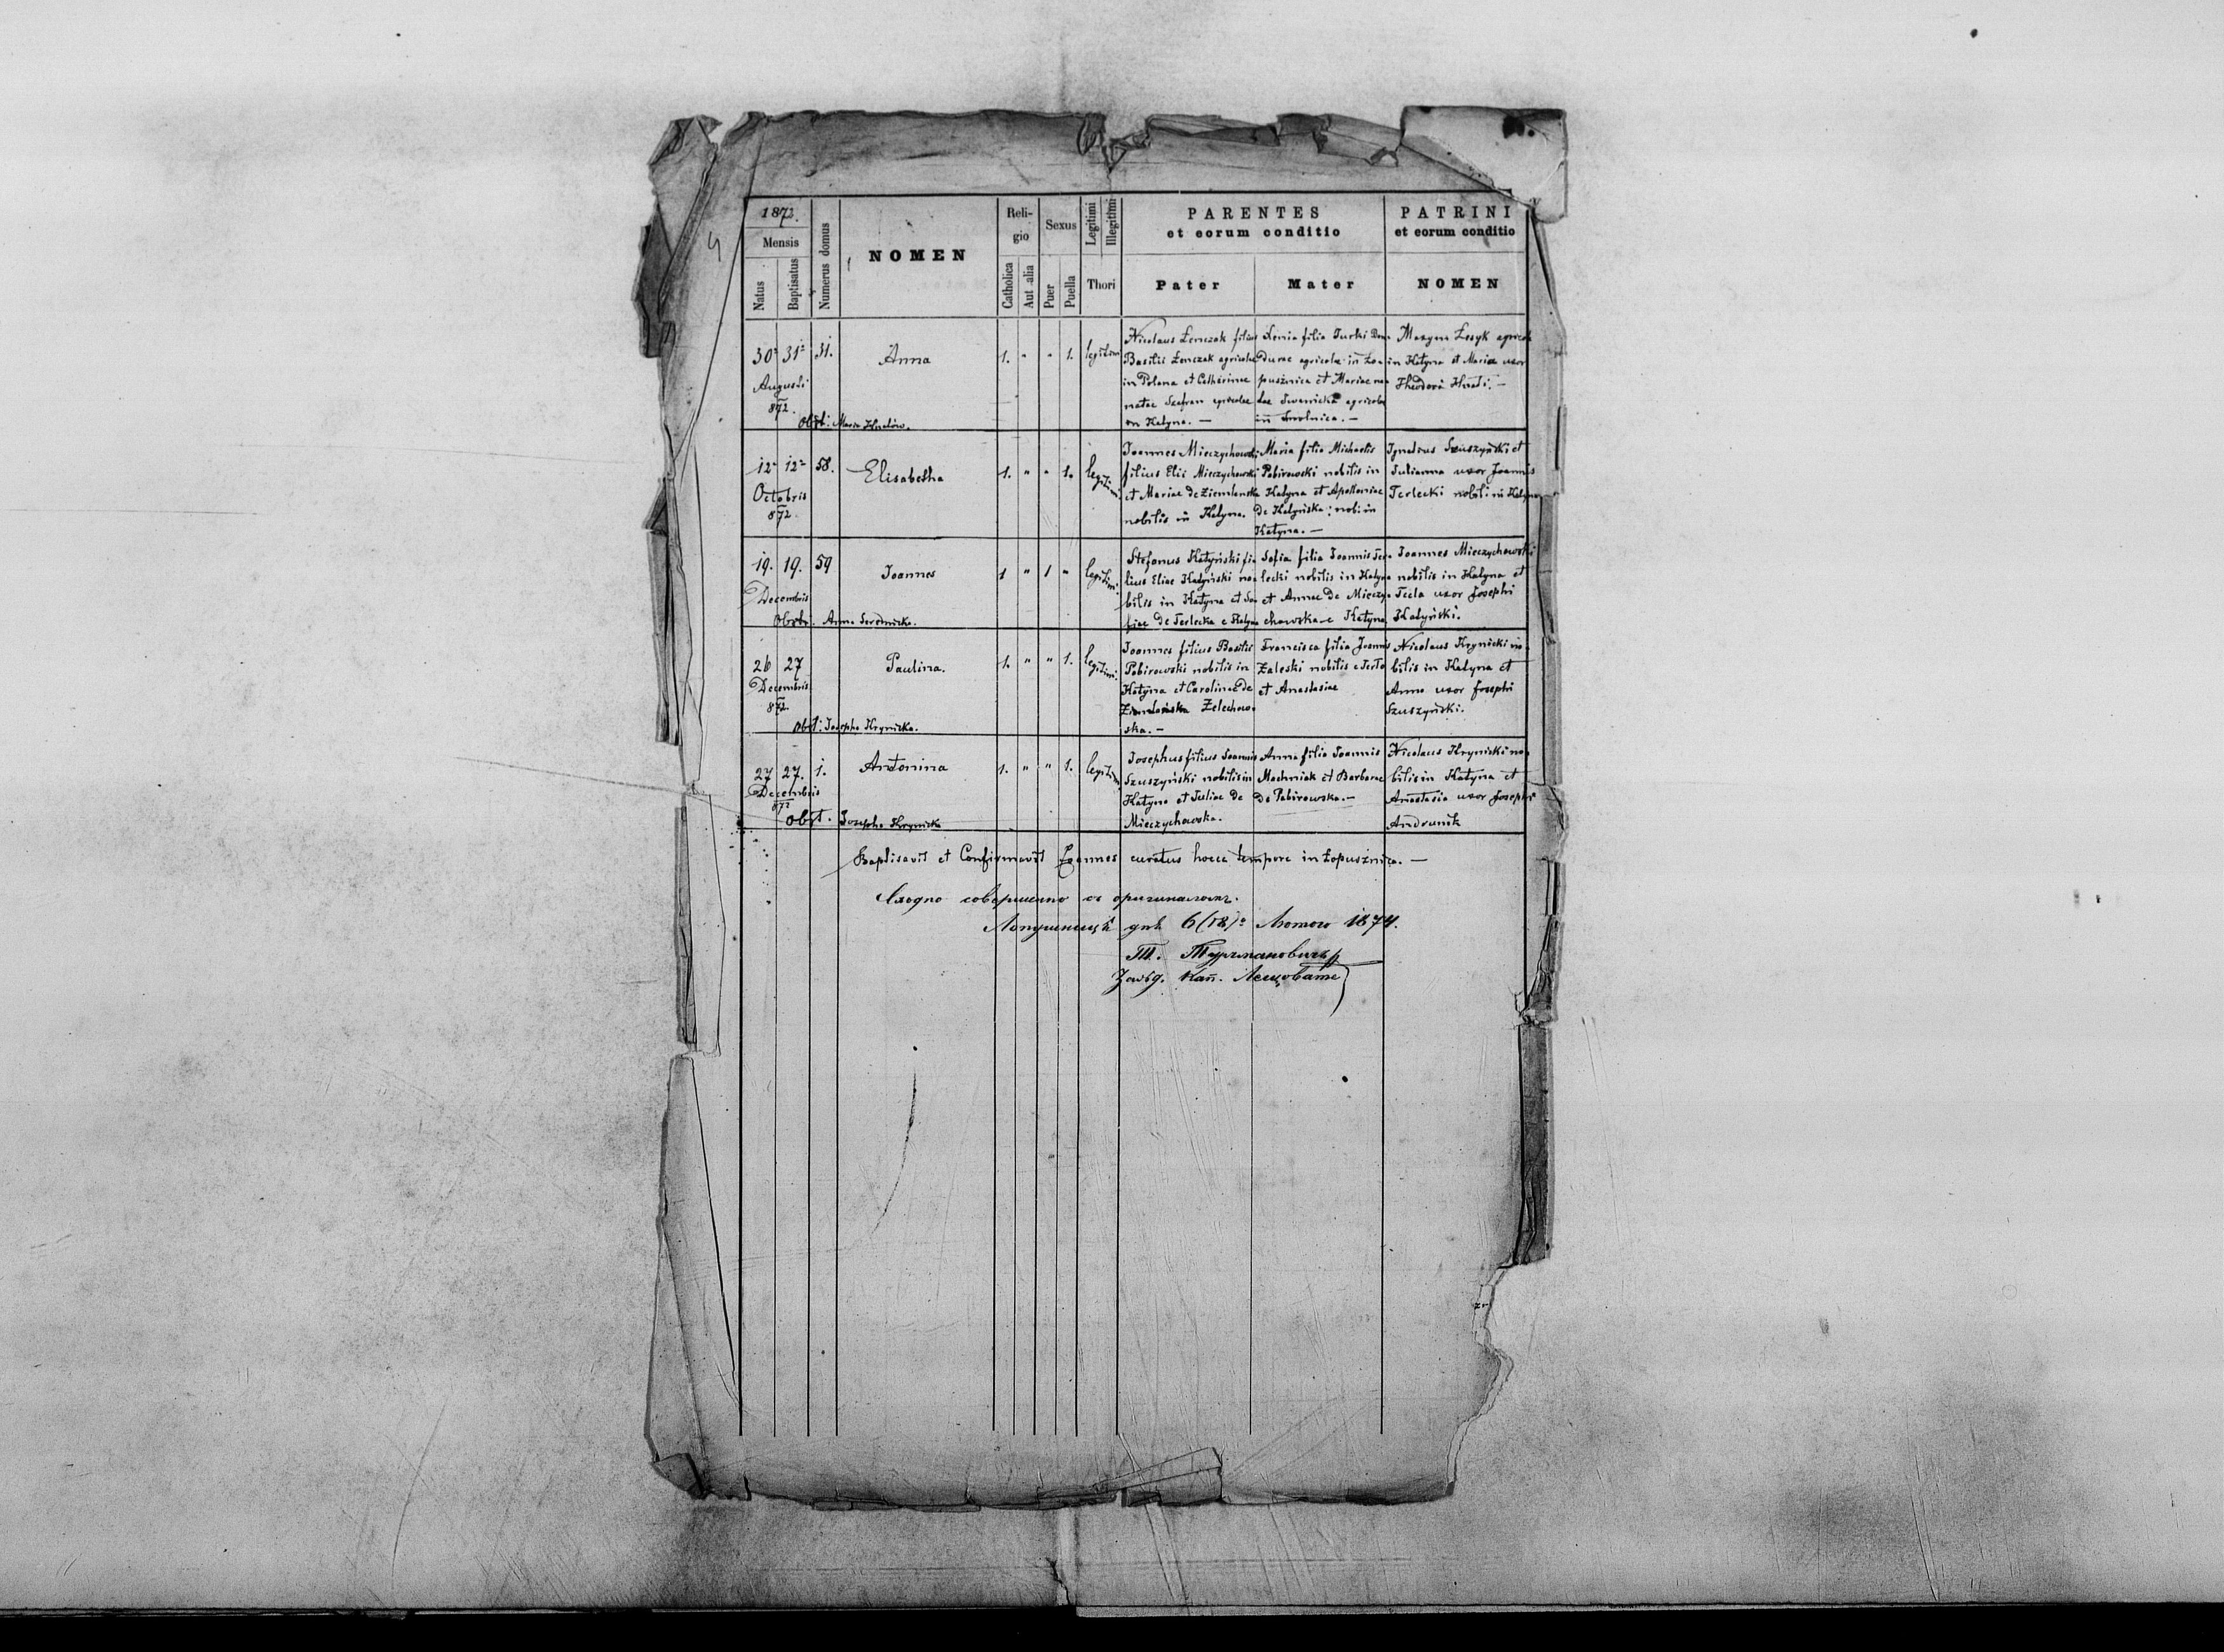 1872.
Mensis
Natus
Baptisatus
Numerus domus
NOMEN
Reli-
gio
Catholica
Aut alia
Sexus
Puer
Puella
Legitimi
Illegitimi
Thori
PARENTES
et eorum conditio
Pater
Mater
PATRINI
et eorum conditio
NOMEN
30 31 31.
Augusti
872.
Anna
1. " " 1.
legitimi
Nicolaus Łenczak filius
Basilii Łenczak agricolae
in Polana et Catharinae
natae Szefran agricolae
in Katyna. —
Xenia filia Turki
agricolae in Ło-
pusznica et Mariae na-
agricolae
in Smolnica. —
Maxym Lesyk agricola
in Katyna et Maria uxor
Theodori Hnati. —
Obst: Maria Hnatów.
12 12 58.
Octobris
872.
Elisabetha
1. " " 1.
legitimi
Joannes Mieczychowski
filius Elii Mieczychowski
et Mariae de Ziemlanska
nobilis in Katyna.
Maria filia Michaelis
Pabirowski nobilis in
Katyna et Apolloniae
de Katyńska; nob: in
Katyna. —
Ignatius Szuszyński et
Julianna uxor Joannis
Terlecki nobili in Katyna
19. 19. 59
Decembris
Joannes
1 " 1 "
legitimi
Stefanus Katyński fi-
lius Eliae Katyński no-
bilis in Katyna et So-
fiae de Terlecka e Katyna
Sofia filia Joannis Ter-
lecki nobilis in Katyna
et Annae de Mieczy-
chowska e Katyna
Joannes Mieczychowski
nobilis in Katyna et
Tecla uxor Josephi
Katyński.
Obst: Anna Serednicka.
26 27
Decembris
872.
Paulina.
1. " " 1.
legitimi
Joannes filius Basilii
Pabirowski nobilis in
Katyna et Carolinae de
Żelechow-
ska. —
Francisca filia Joannis
Zaleski nobilis e Terło
et Anastasiae
Nicolaus Krynicki no-
bilis in Katyna et
Anna uxor Josephi
Szuszyński.
Obst: Josepha Krynicka.
27 27. 1.
Decembris
872
Antonina
1. " " 1.
legitimi
Josephus filius Joannis
Szuszyński nobilis in
Katyna et Juliae de
Mieczychowska.
Anna filia Joannis
Machniak et Barbarae
de Pabirowska. —
Nicolaus Krynicki no-
bilis in Katyna et
Anastasia uxor Josephi
Andrunik
Obst. Josepha Krynicka
Baptisavit et Confirmavit Joannes curatus hocce tempore in Łopusznica. —
Сходно совершенно съ оригиналомъ.
дня 6(18) Лютого 1874.
Т. Турчмановичъ
Завѣд. кап. Лещовате